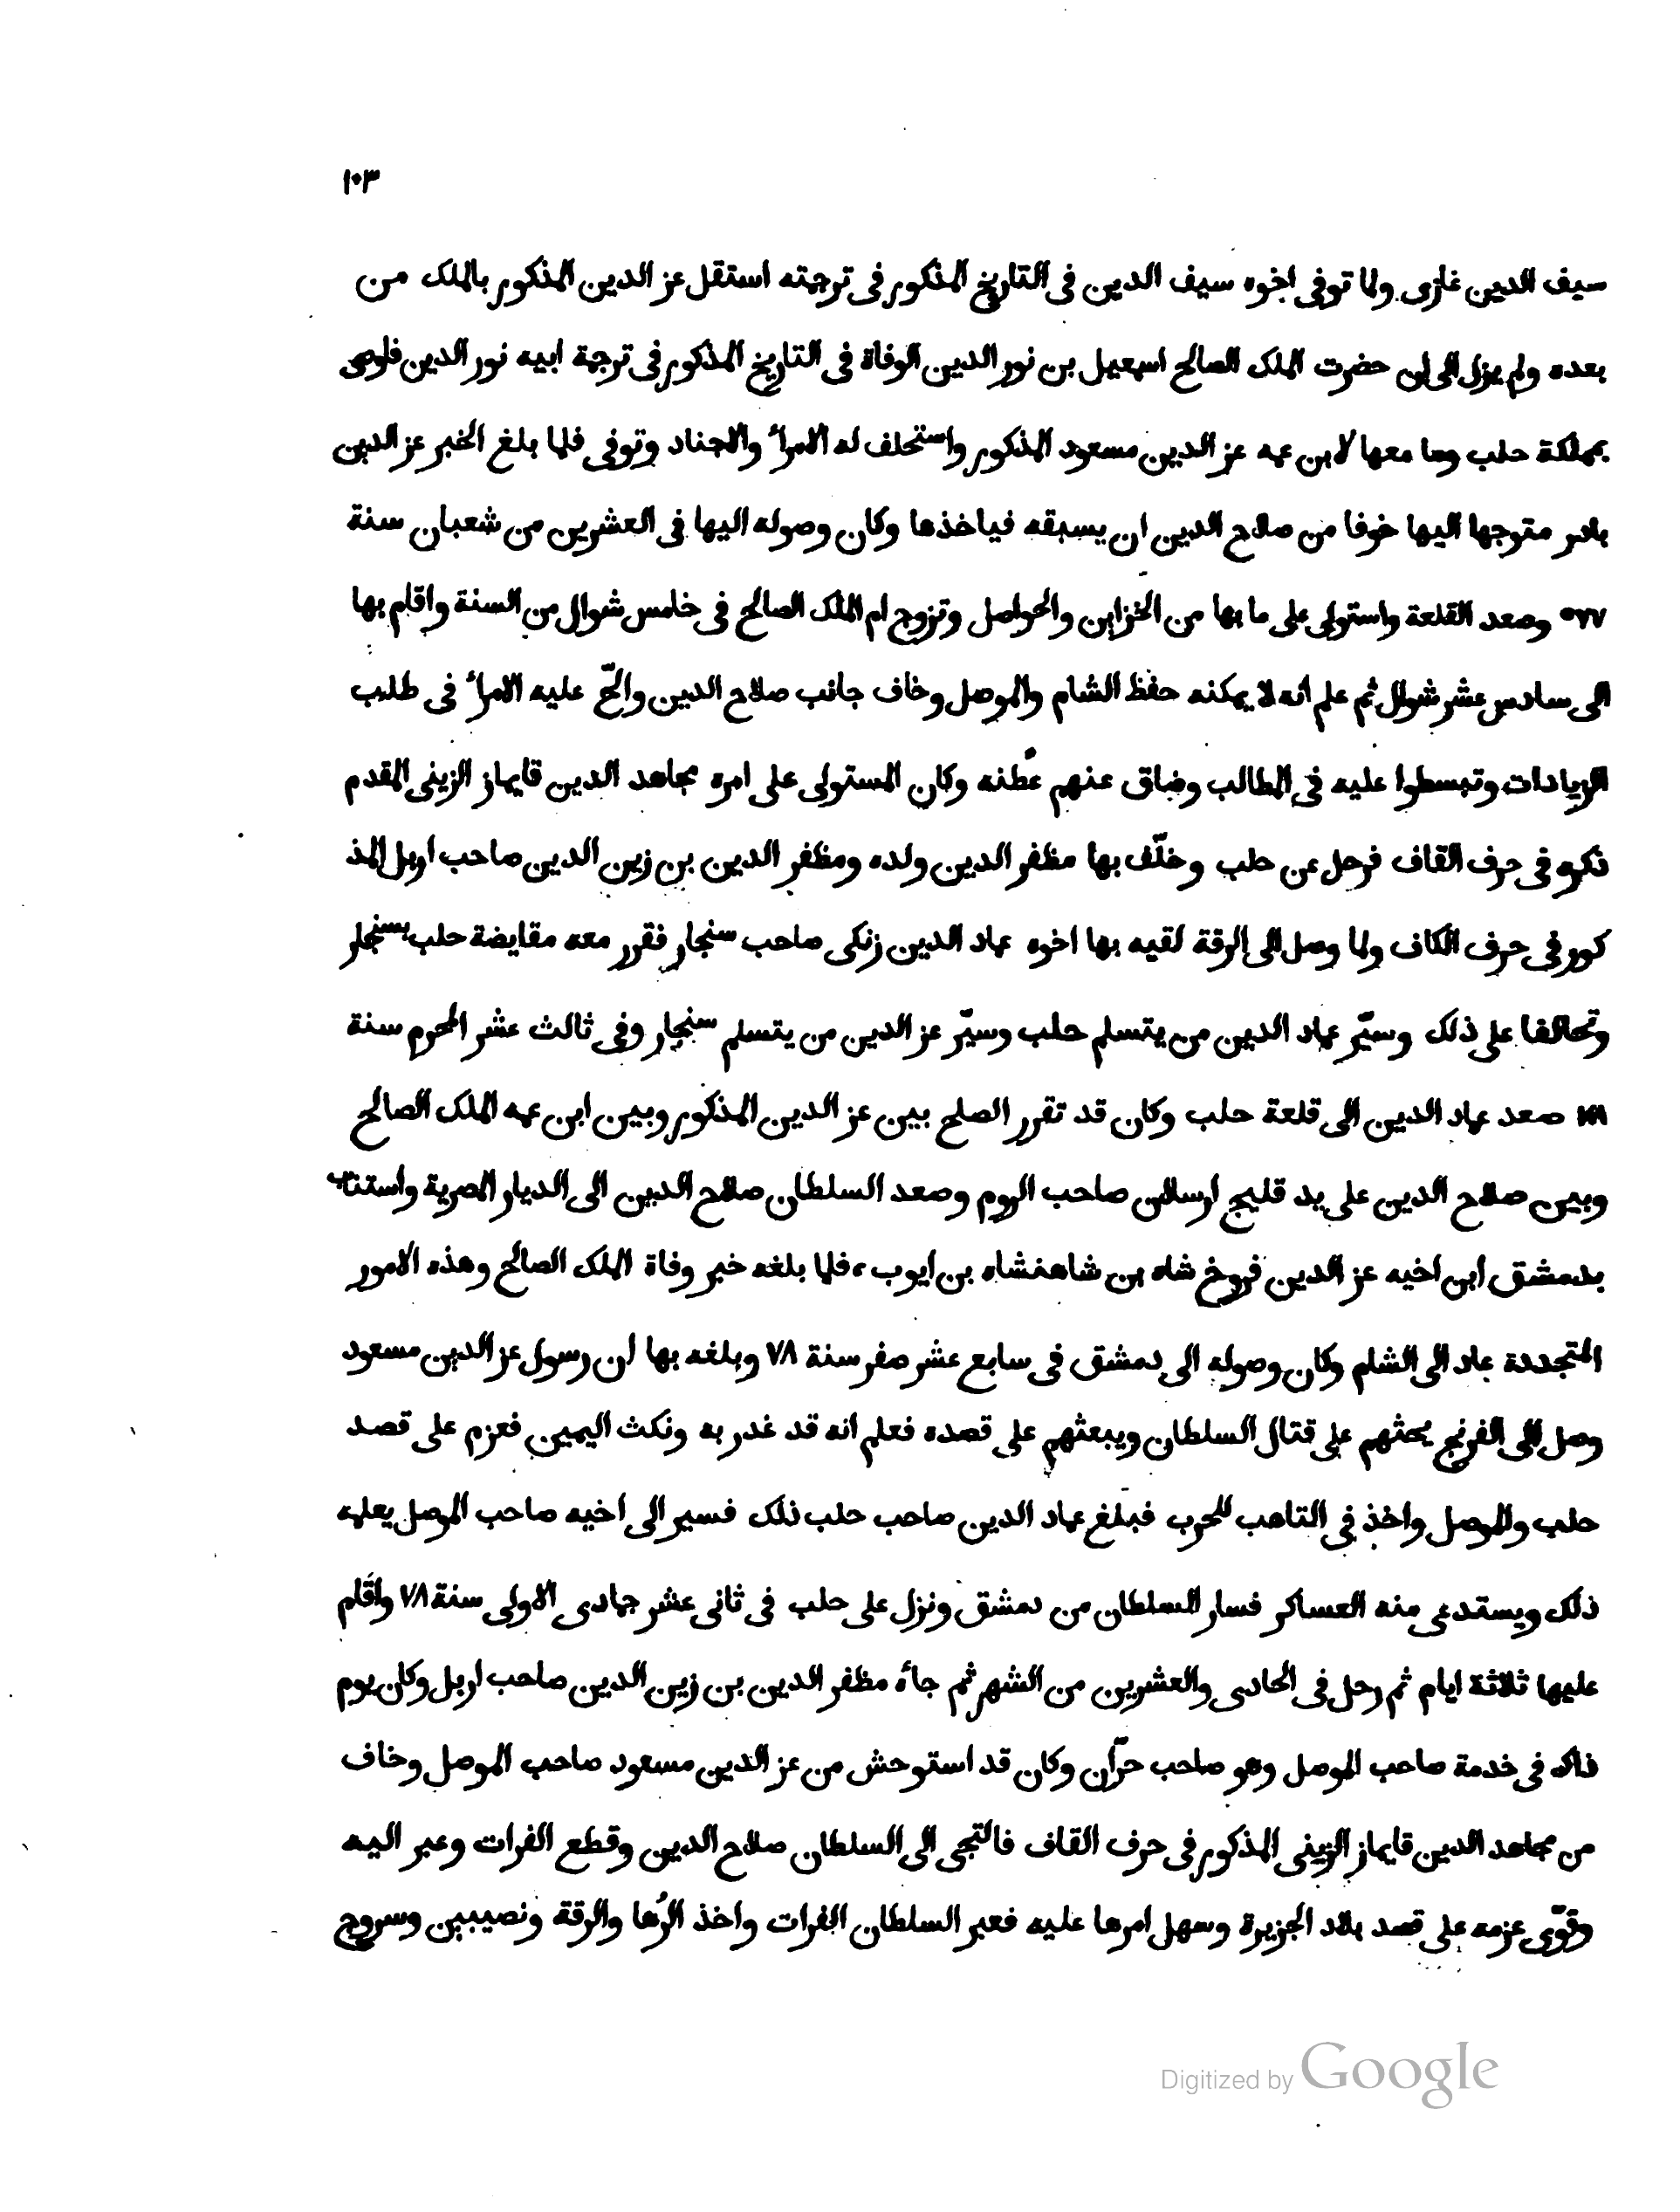 ١٠٣
سيف الدين غازى ولما توفى اخوه سيف الدين فى التاريخ المذكور فى ترجمته استقل عز الدين المذكور بالملك من
بعده ولم يزل الى ان حضرت الملك الصالح اسمعيل بن نور الدين الوفاة فى التاريخ المذكور فى ترجمة ابيه نور الدين فاوصى
بمملكة حلب وما معها لابن عمه عز الدين مسعود المذكور واستحلف له الامرأ والاجناد وتوفى فلما بلغ الخبر عز الدين
بادر متوجها اليها خوفا من صلاح الدين ان يسبقه فياخذها وكان وصوله اليها فى العشرين من شعبان سنة
٥٧٧ وصعد القلعة واستولى على ما بها من الخزاين والحواصل وتزوج ام الملك الصالح فى خامس شوال من السنة واقام بها
الى سادس عشر شوال ثم علم انه لا يمكنه حفظ الشام والموصل وخاف جانب صلاح الدين والحّ عليه الامرأ فى طلب
الزيادات وتبسطوا عليه فى المطالب وضاق عنهم عَطنه وكان المستولى على امره مجاهد الدين قايماز الزينى المقدم
ذكره فى حرف القاف فرحل عن حلب وخلّف بها مظفر الدين ولده ومظفر الدين بن زين الدين صاحب اربل المذ
كور فى حرف الكاف ولما وصل الى الرقة لقيه بها اخوه عماد الدين زنكى صاحب سنجار فقرر معه مقايضة حلب بسنجار
وتحالفا على ذلك وسيّر عماد الدين من يتسلم حلب وسيّر عز الدين من يتسلم سنجار وفى ثالث عشر المحرم سنة
صعد عماد الدين الى قلعة حلب وكان قد تقرر الصلح بين عز الدين المذكور وبين ابن عمه الملك الصالح
وبين صلاح الدين على يد قليج ارسلان صاحب الروم وصعد السلطان صلاح الدين الى الديار المصرية واستناب
بدمشق ابن اخيه عز الدين فروخ شاه بن شاهنشاه بن ايوب، فلما بلغه خبر وفاة الملك الصالح وهذه الامور
المتجددة عاد الى الشام وكان وصوله الى دمشق فى سابع عشر صفر سنة ٧٨ وبلغه بها ان رسول عز الدين مسعود
وصل الى الفرنج يحثهم على قتال السلطان ويبعثهم على قصده فعلم انه قد غدر به ونكث اليمين فعزم على قصد
حلب والموصل واخذ فى التاهب للحرب فبلغ عماد الدين صاحب حلب ذلك فسير الى اخيه صاحب الموصل يعلمه
ذلك ويستدعى منه العساكر فسار السلطان من دمشق ونزل على حلب فى ثانى عشر جمادى الاولى سنة ٧٨ واقام
عليها ثلاثة ايام ثم رحل فى الحادى والعشرين من الشهر ثم جأه مظفر الدين بن زين الدين صاحب اربل وكان يوم
ذاك فى خدمة صاحب الموصل وهو صاحب حرّان وكان قد استوحش من عز الدين مسعود صاحب الموصل وخاف
من مجاهد الدين قايماز الزينى المذكور فى حرف القاف فالتجى الى السلطان صلاح الدين وقطع الفرات وعبر اليه
وقوّى عزمه على قصد بلاد الجزيرة وسهل امرها عليه فعبر السلطان الفرات واخذ الرُها والرقة ونصيبين وسروج
Digitized by Google